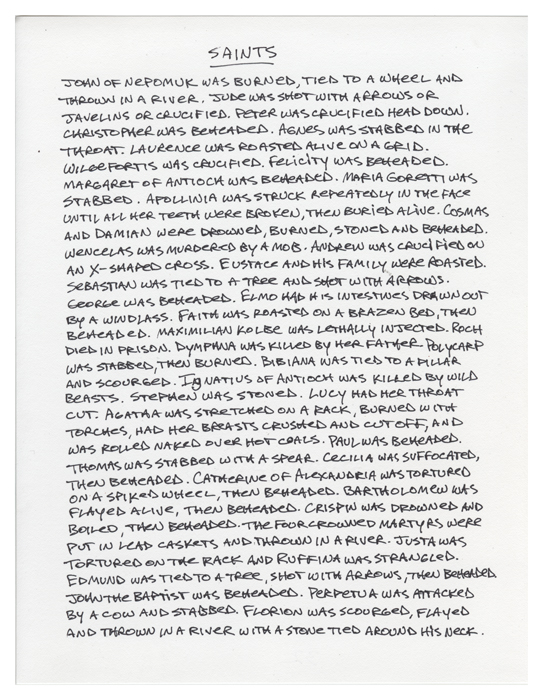 SAINTS
JOHN OF NEPOMUK WAS BURNED, TIED TO A WHEEL AND
THROWN IN A RIVER. JUDE WAS SHOT WITH ARROWS OR
JAVELINS OR CRUCIFIED. PETER WAS CRUCIFIED HEAD DOWN.
CHRISTOPHER WAS BEHEADED. AGNES WAS STABBED IN THE
THROAT. LAURENCE WAS ROASTED ALIVE ON A GRID.
WILGEFORTIS WAS CRUCIFIED. FELICITY WAS BEHEADED.
MARGARET OF ANTIOCH WAS BEHEADED. MARIA GORETTI WAS
STABBED. APOLLINIA WAS STRUCK REPEATEDLY IN THE FACE
UNTIL ALL HER TEETH WERE BROKEN, THEN BURIED ALIVE. COSMAS
AND DAMIAN WERE DROWNED, BURNED, STONED AND BEHEADED.
WENCELAS WAS MURDERED BY A MOB. ANDREW WAS CRUCIFIED ON
AN X-SHAPED CROSS. EUSTACE AND HIS FAMILY WERE ROASTED.
SEBASTIAN WAS TIED TO A TREE AND SHOT WITH ARROWS.
GEORGE WAS BEHEADED. ELMO HAD HIS INTESTINES DRAWN OUT
BY A WINDLASS. FAITH WAS ROASTED ON A BRAZEN BED, THEN
BEHEADED. MAXIMILIAN KOLBE WAS LETHALLY INJECTED. ROCH
DIED IN PRISON. DYMPHNA WAS KILLED BY HER FATHER. POLYCARP
WAS STABBED, THEN BURNED. BIBIANA WAS TIED TO A PILLAR
AND SCOURGED. IGNATIUS OF ANTIOCH WAS KILLED BY WILD
BEASTS. STEPHEN WAS STONED. LUCY HAD HER THROAT
CUT. AGATHA WAS STRETCHED ON A RACK, BURNED WITH
TORCHES, HAD HER BREASTS CRUSHED AND CUT OFF, AND
WAS ROLLED NAKED OVER HOT COALS. PAUL WAS BEHEADED.
THOMAS WAS STABBED WITH A SPEAR. CECILIA WAS SUFFOCATED,
THEN BEHEADED. CATHERINE OF ALEXANDRIA WAS TORTURED
ON A SPIKED WHEEL, THEN BEHEADED. BARTHOLOMEW WAS
FLAYED ALIVE, THEN BEHEADED. CRISPIN WAS DROWNED AND
BOILED, THEN BEHEADED. THE FOUR CROWNED MARTYRS WERE
PUT IN LEAD CASKETS AND THROWN IN A RIVER. JUSTA WAS
TORTURED ON THE RACK AND RUFFINA WAS STRANGLED.
EDMUND WAS TIED TO A TREE, SHOT WITH ARROWS, THEN BEHEADED.
JOHN THE BAPTIST WAS BEHEADED. PERPETUA WAS ATTACKED
BY A COW AND STABBED. FLORION WAS SCOURGED, FLAYED
AND THROWN IN A RIVER WITH A STONE TIED AROUND HIS NECK.